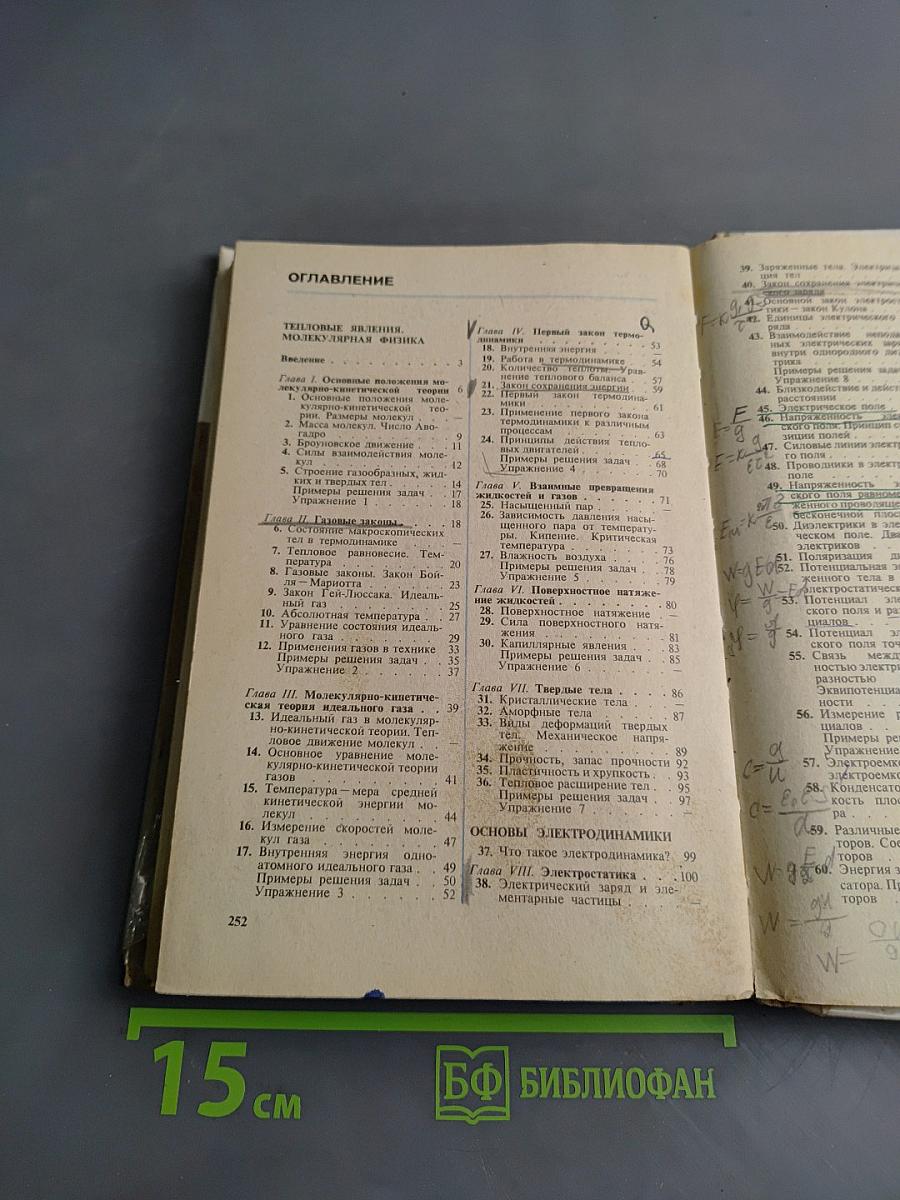 ОГЛАВЛЕНИЕ
ТЕПЛОВЫЕ ЯВЛЕНИЯ.
МОЛЕКУЛЯРНАЯ ФИЗИКА
Введение . . . . . . . . . . . 3
Глава I. Основные положения мо-
лекулярно-кинетической теории 6
1. Основные положения моле-
кулярно-кинетической тео-
рии. Размеры молекул . . —
2. Масса молекул. Число Аво-
гадро . . . . . . . . . 9
3. Броуновское движение . . 11
4. Силы взаимодействия моле-
кул . . . . . . . . . . 12
5. Строение газообразных, жид-
ких и твердых тел . . . . 14
Примеры решения задач . 17
Упражнение 1 . . . . . . 18
Глава II. Газовые законы . . . . 18
6. Состояние макроскопических
тел в термодинамике . . . —
7. Тепловое равновесие. Тем-
пература . . . . . . . . 20
8. Газовые законы. Закон Бой-
ля — Мариотта . . . . . 23
9. Закон Гей-Люссака. Идеаль-
ный газ . . . . . . . . 25
10. Абсолютная температура . 27
11. Уравнение состояния идеаль-
ного газа . . . . . . . 29
12. Применения газов в технике 33
Примеры решения задач . 35
Упражнение 2 . . . . . . 37
Глава III. Молекулярно-кинетиче-
ская теория идеального газа . . 39
13. Идеальный газ в молекуляр-
но-кинетической теории. Теп-
ловое движение молекул . —
14. Основное уравнение моле-
кулярно-кинетической теории
газов . . . . . . . . . 41
15. Температура — мера средней
кинетической энергии мо-
лекул . . . . . . . . . 44
16. Измерение скоростей моле-
кул газа . . . . . . . . 47
17. Внутренняя энергия одно-
атомного идеального газа . . 49
Примеры решения задач . . 50
Упражнение 3 . . . . . . 52
252
Q
Глава IV. Первый закон термо-
динамики . . . . . . . . . 53
18. Внутренняя энергия . . . —
19. Работа в термодинамике . 54
20. Количество теплоты. Урав-
нение теплового баланса . . 57
21. Закон сохранения энергии . 59
22. Первый закон термодина-
мики . . . . . . . . . . 61
23. Применение первого закона
термодинамики к различным
процессам . . . . . . . 63
24. Принципы действия тепло-
вых двигателей . . . . . 65
Примеры решения задач . . 68
Упражнение 4 . . . . . . 70
Глава V. Взаимные превращения
жидкостей и газов . . . . . . 71
25. Насыщенный пар . . . . —
26. Зависимость давления насы-
щенного пара от температу-
ры. Кипение. Критическая
температура . . . . . . 73
27. Влажность воздуха . . . 76
Примеры решения задач . . 78
Упражнение 5 . . . . . . 79
Глава VI. Поверхностное натяже-
ние жидкостей . . . . . . . 80
28. Поверхностное натяжение . —
29. Сила поверхностного натя-
жения . . . . . . . . . 81
30. Капиллярные явления . . 83
Примеры решения задач . 85
Упражнение 6 . . . . . . —
Глава VII. Твердые тела . . . . 86
31. Кристаллические тела . . —
32. Аморфные тела . . . . . 87
33. Виды деформаций твердых
тел. Механическое напря-
жение . . . . . . . . . 89
34. Прочность, запас прочности 92
35. Пластичность и хрупкость . . 93
36. Тепловое расширение тел . . 95
Примеры решения задач . . 97
Упражнение 7 . . . . . . —
ОСНОВЫ ЭЛЕКТРОДИНАМИКИ
37. Что такое электродинамика? 99
Глава VIII. Электростатика . . . 100
38. Электрический заряд и эле-
ментарные частицы . . . . —
39. Заряженные тела.
ция тел
40. Закон сохранения
ского заряда
41. Основной закон
тики — закон Кулона
42. Единицы электрического
ряда
43. Взаимодействие
ных электрических
внутри однородного
трика
Примеры решения
Упражнение 8
44. Близкодействие и
расстоянии
45. Электрическое поле
46. Напряженность
ского поля. Принцип
зиции полей
47. Силовые линии
го поля
48. Проводники в
поле
49. Напряженность
ского поля
ного
бесконечной
50. Диэлектрики в
ческом поле.
электриков
51. Поляризация
52. Потенциальная
женного тела в
электростатическ
53. Потенциал
ского поля и
циалов
54. Потенциал
ского поля
55. Связь
ностью
разностью
Эквипотенциа
ности
56. Измерение
циалов
Примеры
Упражнение
57.
58.
кость
ра
59. Различные
торов.
торов
60. Энергия
сатора.
торов
15 см
БФ БИБЛИОФАН